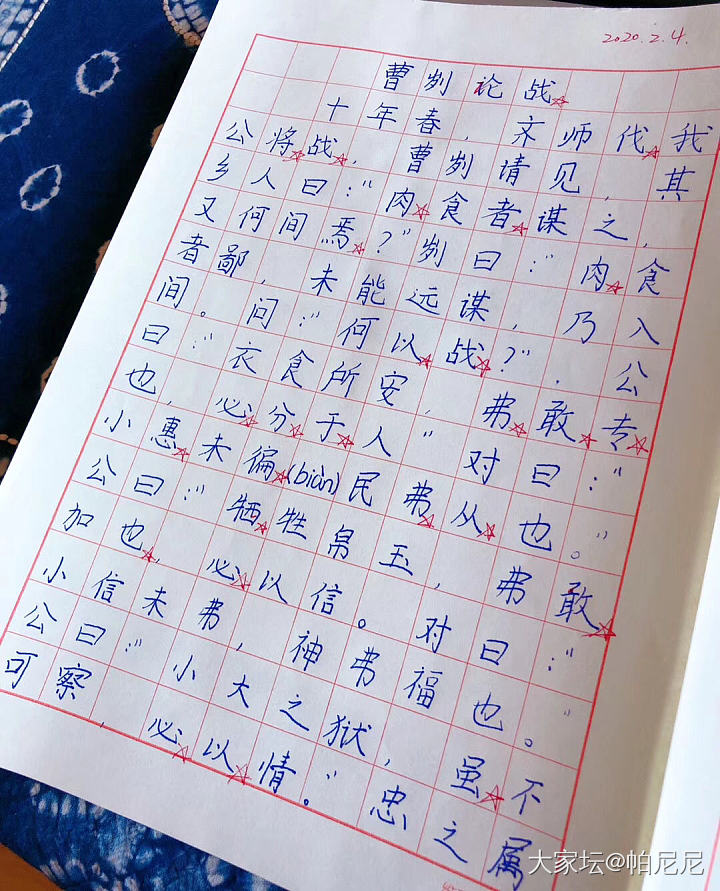 2020.2.4.
曹刿论战
十年春，齐师伐我
公将战，曹刿请见，其
乡人曰："肉食者谋之，
又何间焉？"刿曰："肉食
者鄙，未能远谋，乃入
间。问："何以战？"．公
曰："衣食所安，弗敢专
也，必分于人"对曰："
小惠未徧(biàn)民弗从也。"
公曰："牺牲帛玉，弗敢
加也，必以信。对曰："
小信未弗，神弗福也。"
公曰："小大之狱，虽不
可察，必以情。"忠之属
大家坛@帕尼尼